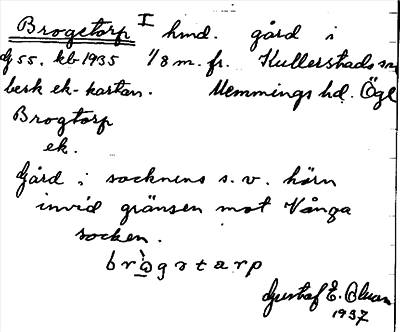 Brogetorp I hmd. gård i
dj 55. kb-1935 1/8 m. fr. Kullerstads sn
besk ek-kartan. Memmings hd. Ögl
Brogtorp
ek.
Gård i socknens s.v. hörn
invid gränsen mot Vånga
socken.
brògstarp
Gustaf E. Bluun
1937